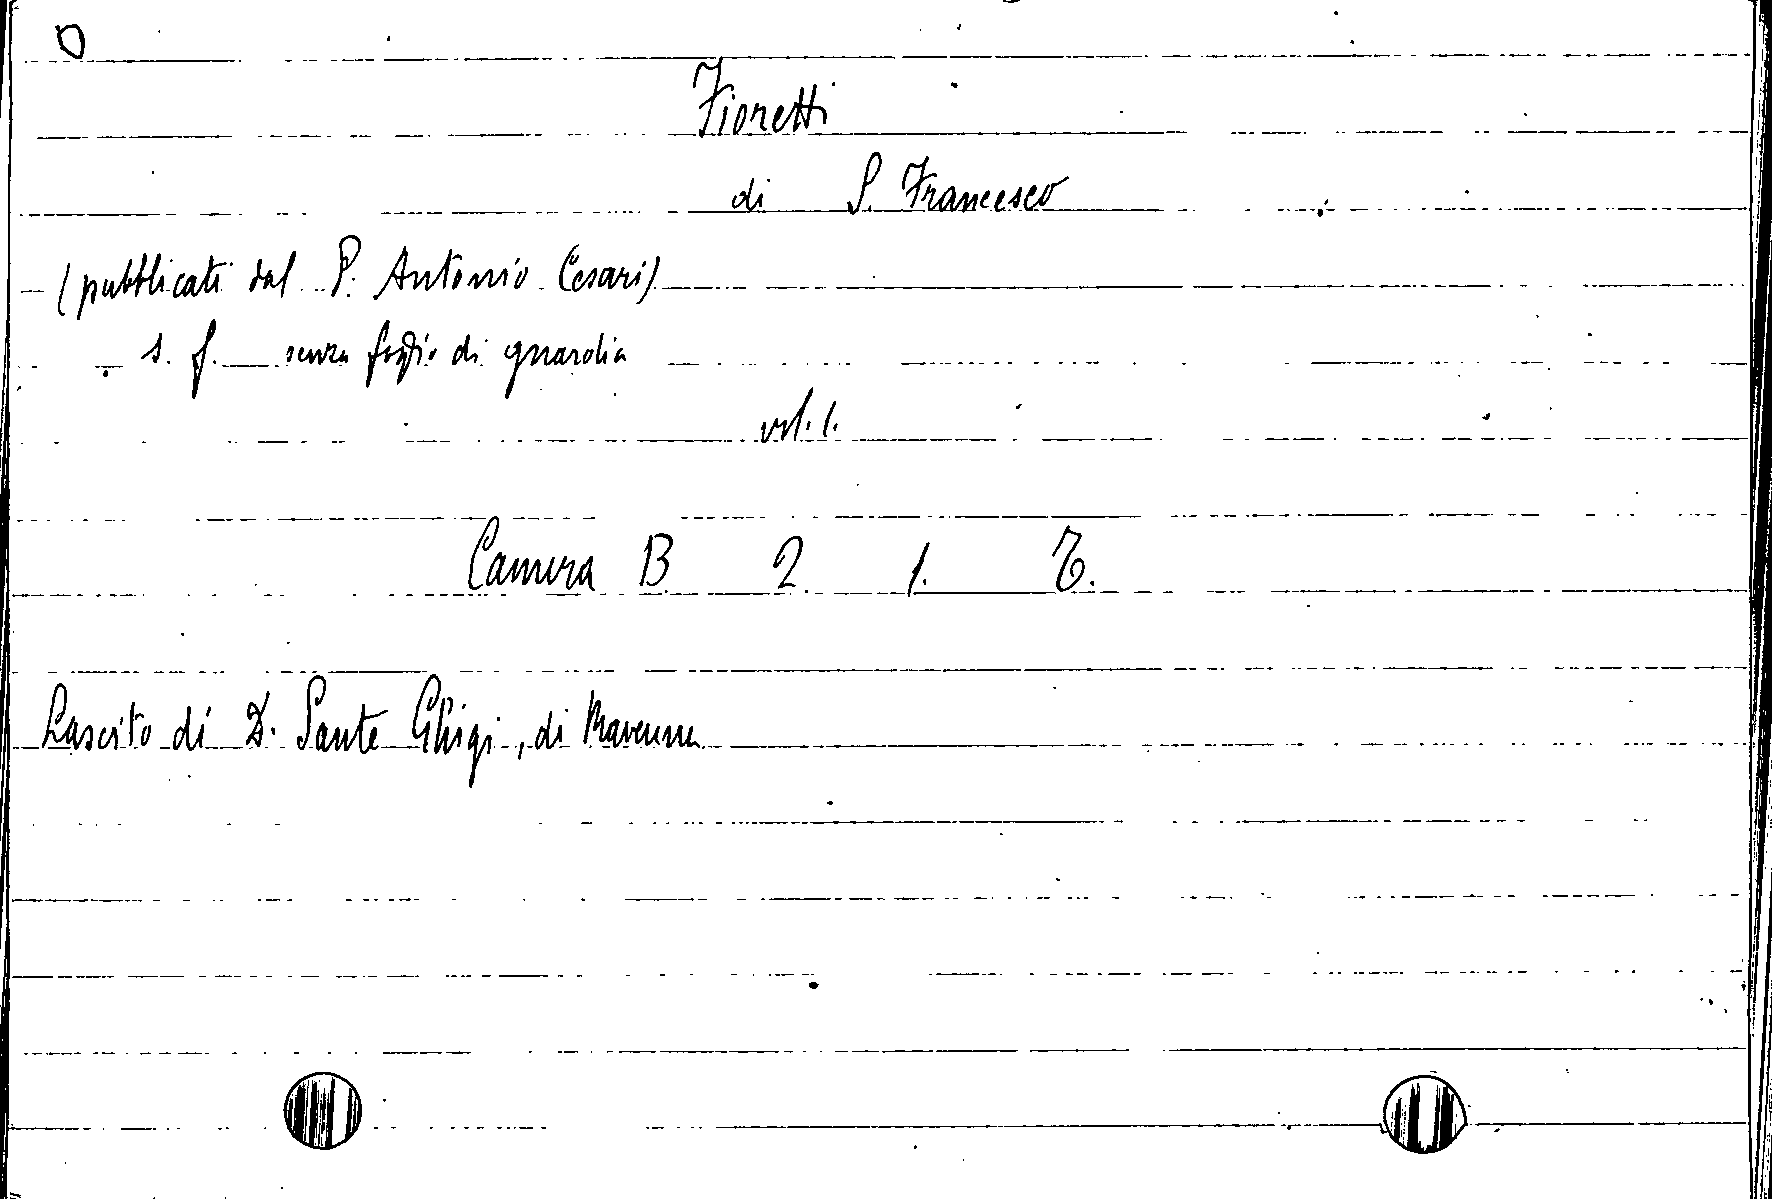 Fioretti
di S. Francesco
(pubblicati dal P. Antonio Cesari)
s. f. senza foglio di guardia
vol. 1.
Camera B 2. 1.
Lascito di D. Sante Ghigi, di Ravenna